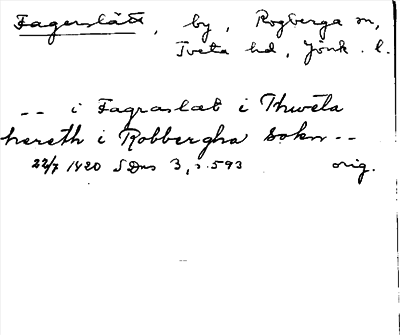 Fagerslätt, by, Rogberga sn,
Tveta hd, Jönk. l.
-- i Fagraslæt i Thwéta
hereth i Robbergha sokn --
22/7 1420 SDns 3, s. 593 orig.